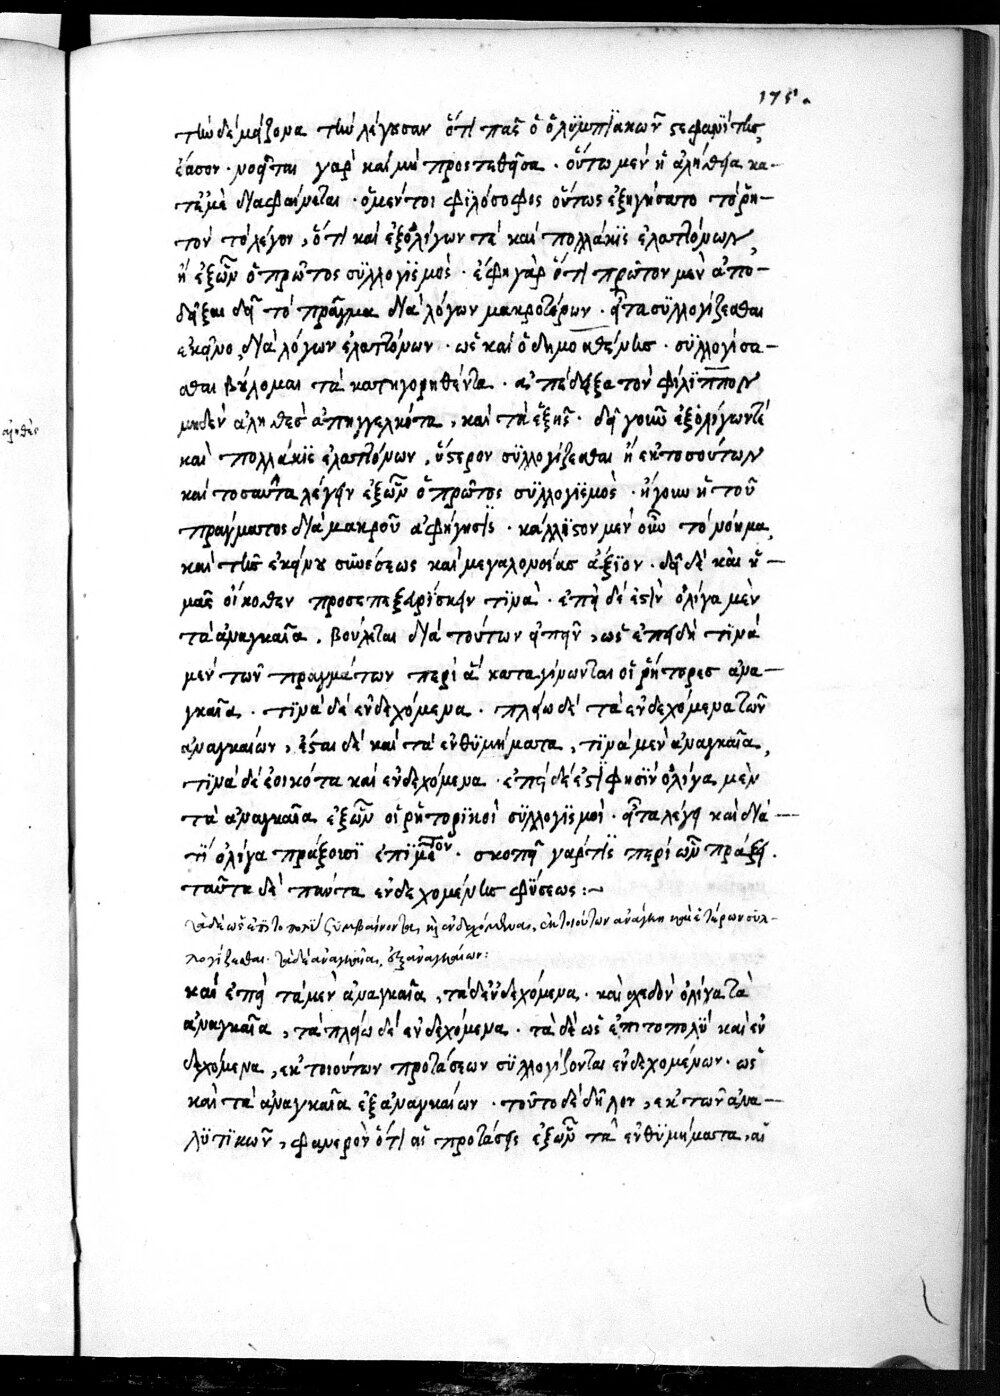 175.
τὴν δὲ μείζονα τὴν λέγουσαν ὅτι πᾶς ὁ ὀλυμπιακῶν στεφανίτης,
ἔασον· νοεῖται γὰρ καὶ μὴ προστεθεῖσα· οὕτω μὲν ἡ ἀλήθεια κα-
τ' ἐμὲ διαφαίνεται· ὁ μέντοι φιλόσοφος οὕτως ἐξηγήσατο τὸ ῥη-
τὸν τὸ λέγον, ὅτι καὶ ἐξ ὀλίγων τὲ καὶ πολλάκις ἐλαττόνων,
ἢ ἐξ ὧν ὁ πρῶτος συλλογισμὸς· ἔφη γὰρ ὅτι πρῶτον μὲν ἀπο-
δεῖξαι δεῖ τὸ πρᾶγμα διὰ λόγων μακροτέρων· εἶτα συλλογίζεσθαι
ἐκεῖνο διὰ λόγων ἐλαττόνων· ὡς καὶ ὁ δημοσθένης· συλλογίσα-
σθαι βούλομαι τὰ κατηγορηθέντα· ἀπέδειξα τὸν φίλιππον
μηδὲν ἀληθὲς ἀπηγγελκότα, καὶ τὰ ἑξῆς· δεῖ γοῦν ἐξ ὀλίγων τὲ
καὶ πολλάκις ἐλαττόνων, ὕστερον συλλογίζεσθαι ἢ ἐκ τοσούτων
καὶ τοσαῦτα λέγειν ἐξ ὧν ὁ πρῶτος συλλογισμὸς· ἤγουν ἡ τοῦ
πράγματος διὰ μακροῦ ἀφήγησις· κάλλιστον μὲν οὖν τὸ νόημα,
καὶ τῆς ἐκείνου συνέσεως καὶ μεγαλονοίας ἄξιον· δεῖ δὲ καὶ ἡ-
μᾶς οἴκοθεν προσεπεξευρίσκειν τινὰ· ἐπεὶ δέ ἐστιν ὀλίγα μὲν
τὰ ἀναγκαῖα, βούλεται διὰ τούτων εἰπεῖν, ὡς ἐπειδὴ τινὰ
μὲν τῶν πραγμάτων περὶ ἃ καταγίνωνται οἱ ῥήτορες ἀνα-
γκαῖα· τινὰ δὲ ἐνδεχόμενα· πλείω δὲ τὰ ἐνδεχόμενα τῶν
ἀναγκαίων, ἔσται δὲ καὶ τὰ ἐνθυμήματα, τινὰ μὲν ἀναγκαῖα,
τινὰ δὲ ἐοικότα καὶ ἐνδεχόμενα· ἐπεὶ δέ ἐστι φησὶν ὀλίγα μὲν
τὰ ἀναγκαῖα ἐξ ὧν οἱ ῥητορικοὶ συλλογισμοὶ· εἶτα λέγει καὶ διὰ
τί ὀλίγα πράξοισι· σκοπεῖ γάρ τις περὶ ὧν πράξει·
ταῦτα δὲ πάντα ἐνδεχομένης φύσεως:~
τὰ δὲ ὡς ἐπὶ τὸ πολὺ ξυμβαίνοντα, καὶ ἐνδεχόμενα, ἐκ τοιούτων ἀνάγκη ἑτέρων συλ-
λογίζεσθαι. τὰ δὲ ἀναγκαῖα, ἐξ ἀναγκαίων:
καὶ ἐπεὶ τὰ μὲν ἀναγκαῖα, τὰ δ' ἐνδεχόμενα· καὶ σχεδὸν ὀλίγα τὰ
ἀναγκαῖα, τὰ πλείω δὲ ἐνδεχόμενα· τὰ δὲ ὡς ἐπιτοπολὺ καὶ ἐν
δεχόμενα, ἐκ τοιούτων προτάσεων συλλογίζονται ἐνδεχομένων· ὡς
καὶ τὰ ἀναγκαῖα ἐξ ἀναγκαίων· τοῦτο δὲ δῆλον, ἐκ τῶν ἀνα-
λυτικῶν, φανερὸν ὅτι αἱ προτάσεις ἐξ ὧν τὰ ἐνθυμήματα, αἱ